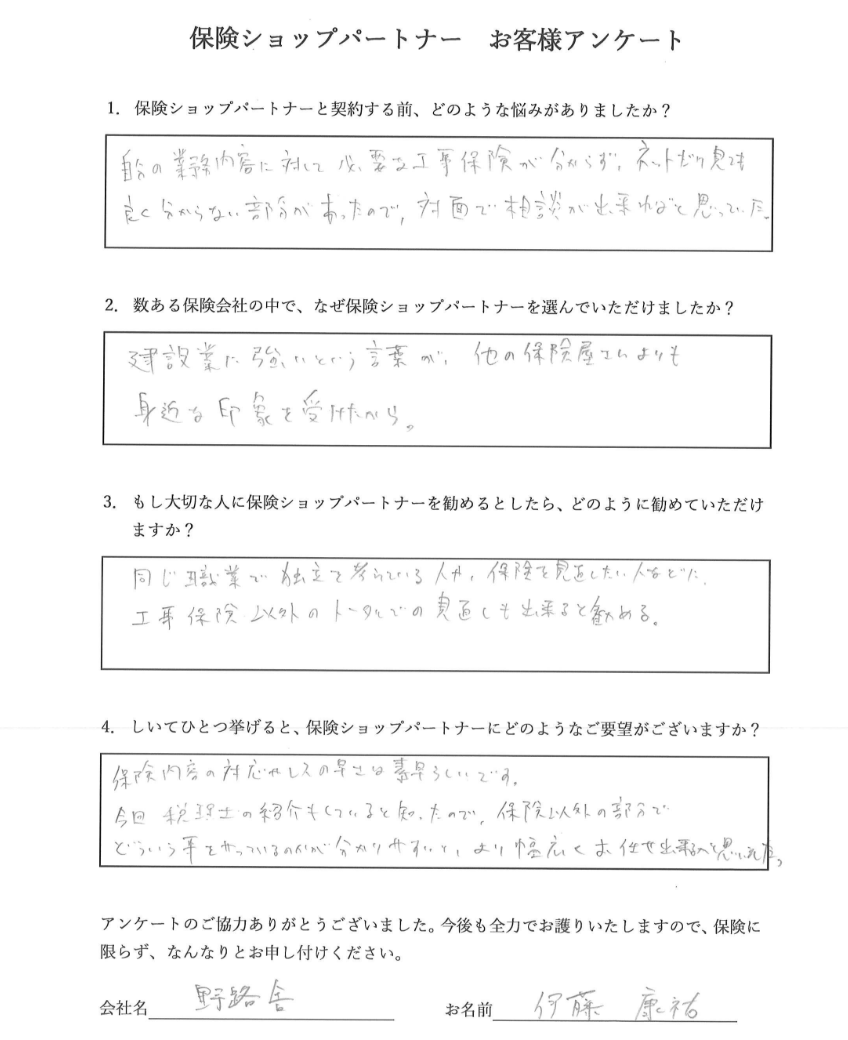 保険ショップパートナー　お客様アンケート
1. 保険ショップパートナーと契約する前、どのような悩みがありましたか？
自分の業務内容に対して必要な工事保険が分からず、ネットだけ見ても
良く分からない部分があったので、対面で相談が出来ればと思っていた。
2. 数ある保険会社の中で、なぜ保険ショップパートナーを選んでいただけましたか？
建設業に強いという言葉が、他の保険屋さんよりも
身近な印象を受けたから。
3. もし大切な人に保険ショップパートナーを勧めるとしたら、どのように勧めていただけ
ますか？
同じ職業で独立を考えている人や、保険を見直したい人などに、
工事保険以外のトータルでの見直しも出来ると勧める。
4. しいてひとつ挙げると、保険ショップパートナーにどのようなご要望がございますか？
保険内容の対応やレスの早さは素早らしいです。
今回税理士の紹介もしていると知ったので、保険以外の部分で
どういう事をやっているのかが分かりやすいと、より幅広くお任せ出来る
アンケートのご協力ありがとうございました。今後も全力でお護りいたしますので、保険に
限らず、なんなりとお申し付けください。
会社名 野路舎 お名前 伊藤 康祐